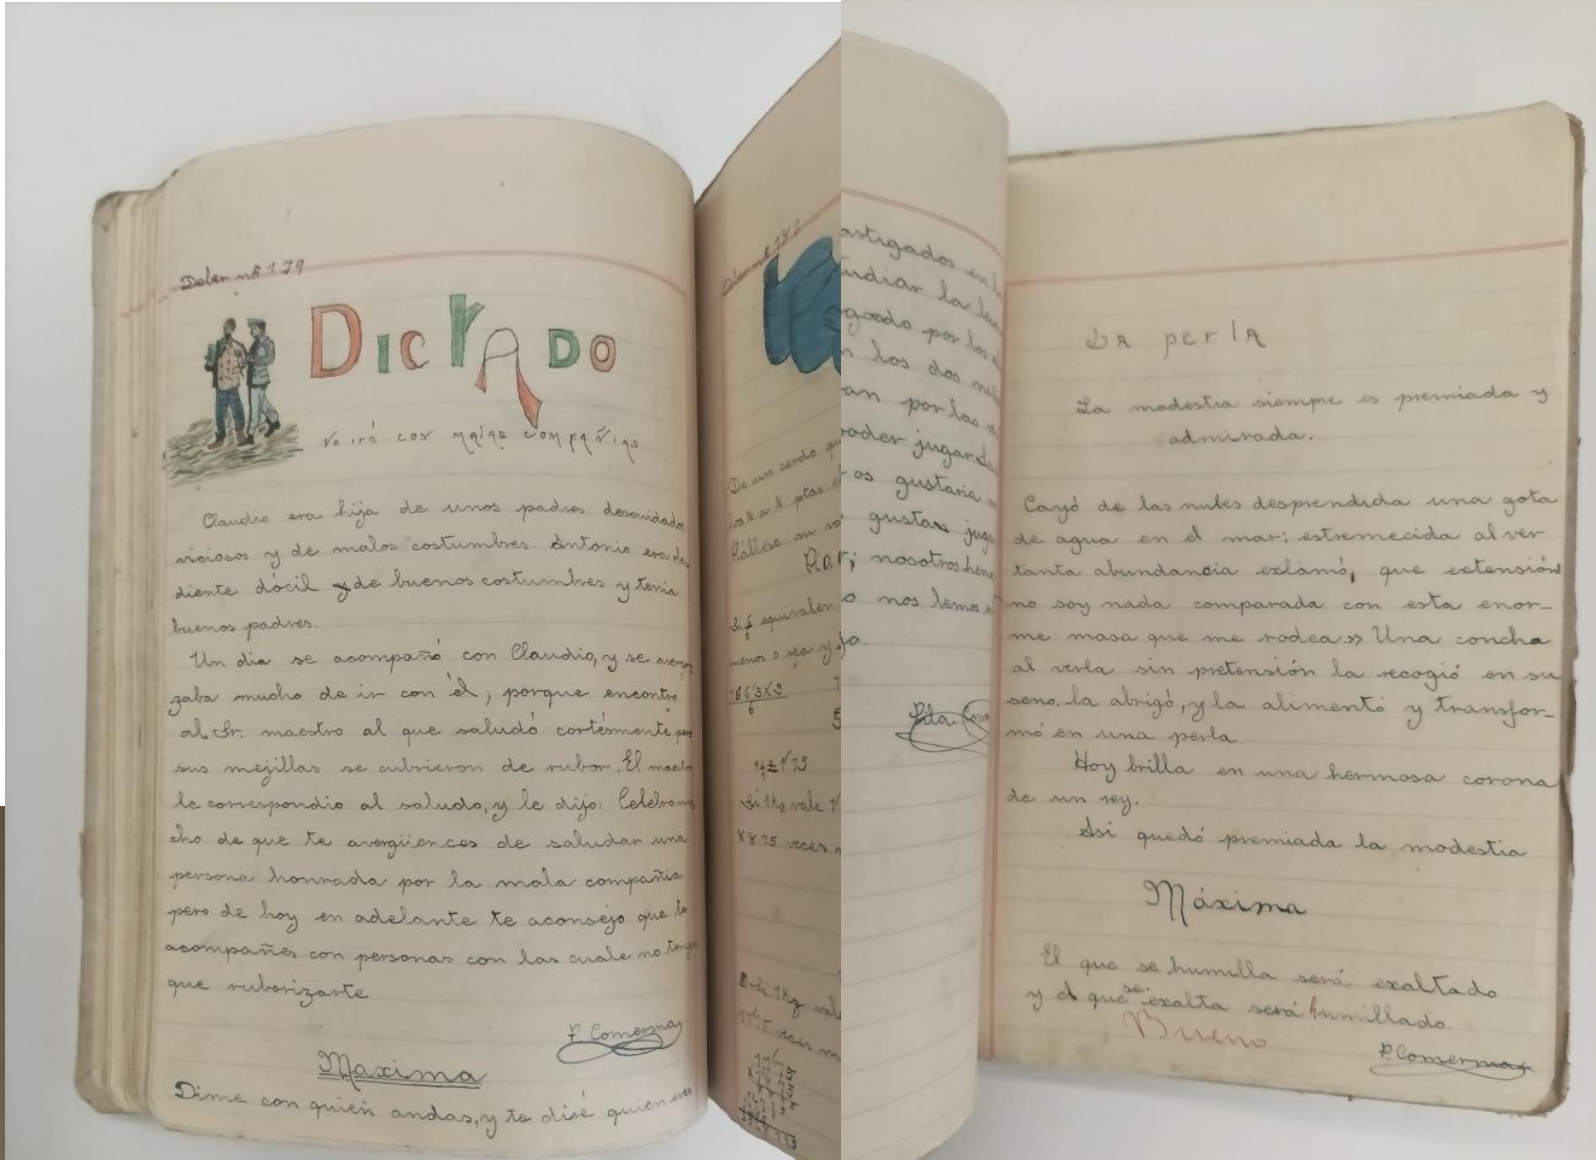 Deber nº 179
DICTADO
No iré con malas compañías
Claudio era hija de unos padres descuidados
viciosos y de malos costumbres. Antonio era
diente dócil y de buenos costumbres y tenia
buenos padres.
Un dia se acompañó con Claudio, y se
zaba mucho de ir con él; porque encontro
al Sr. maestro al que saludó cortésmente pero
sus mejillas se cubrieron de rubor. El maestro
le correspondio al saludo, y le dijo: Celebro mu
cho de que te avergüences de saludar una
persona honrada por la mala compañia
pero de hoy en adelante te aconsejo que te
acompañes con personas con las cuale no tengas
que ruborizarte
P. Comerma
Maxima
Dime con quien andas, y te diré quien eres
De un cerdo
ptas
Hállese su
equivalen
menos o sea y
6
Si 1 Kg vale
veces
Si 1 Kg
veces m
astigados en
udiar la
gado por los
n los dos
an por las
poder jugar
os gustaria
gustan
; nosotros
o nos lemos
Pila
La perla
La modestia siempre es premiada y
admirada.
Cayó de las nubes desprendida una gota
de agua en el mar: estremecida al ver
tanta abundancia exlamó, que extensión
no soy nada comparada con esta enor-
me masa que me rodea.» Una concha
al verla sin pretensión la recogió en su
seno, la abrigó, y la alimentó y transfor-
mó en una perla.
Hoy brilla en una hermosa corona
de un rey.
Asi quedó premiada la modestia
Máxima
El que se humilla será exaltado
y el que se exalta será humillado.
Bueno
P. Comerma